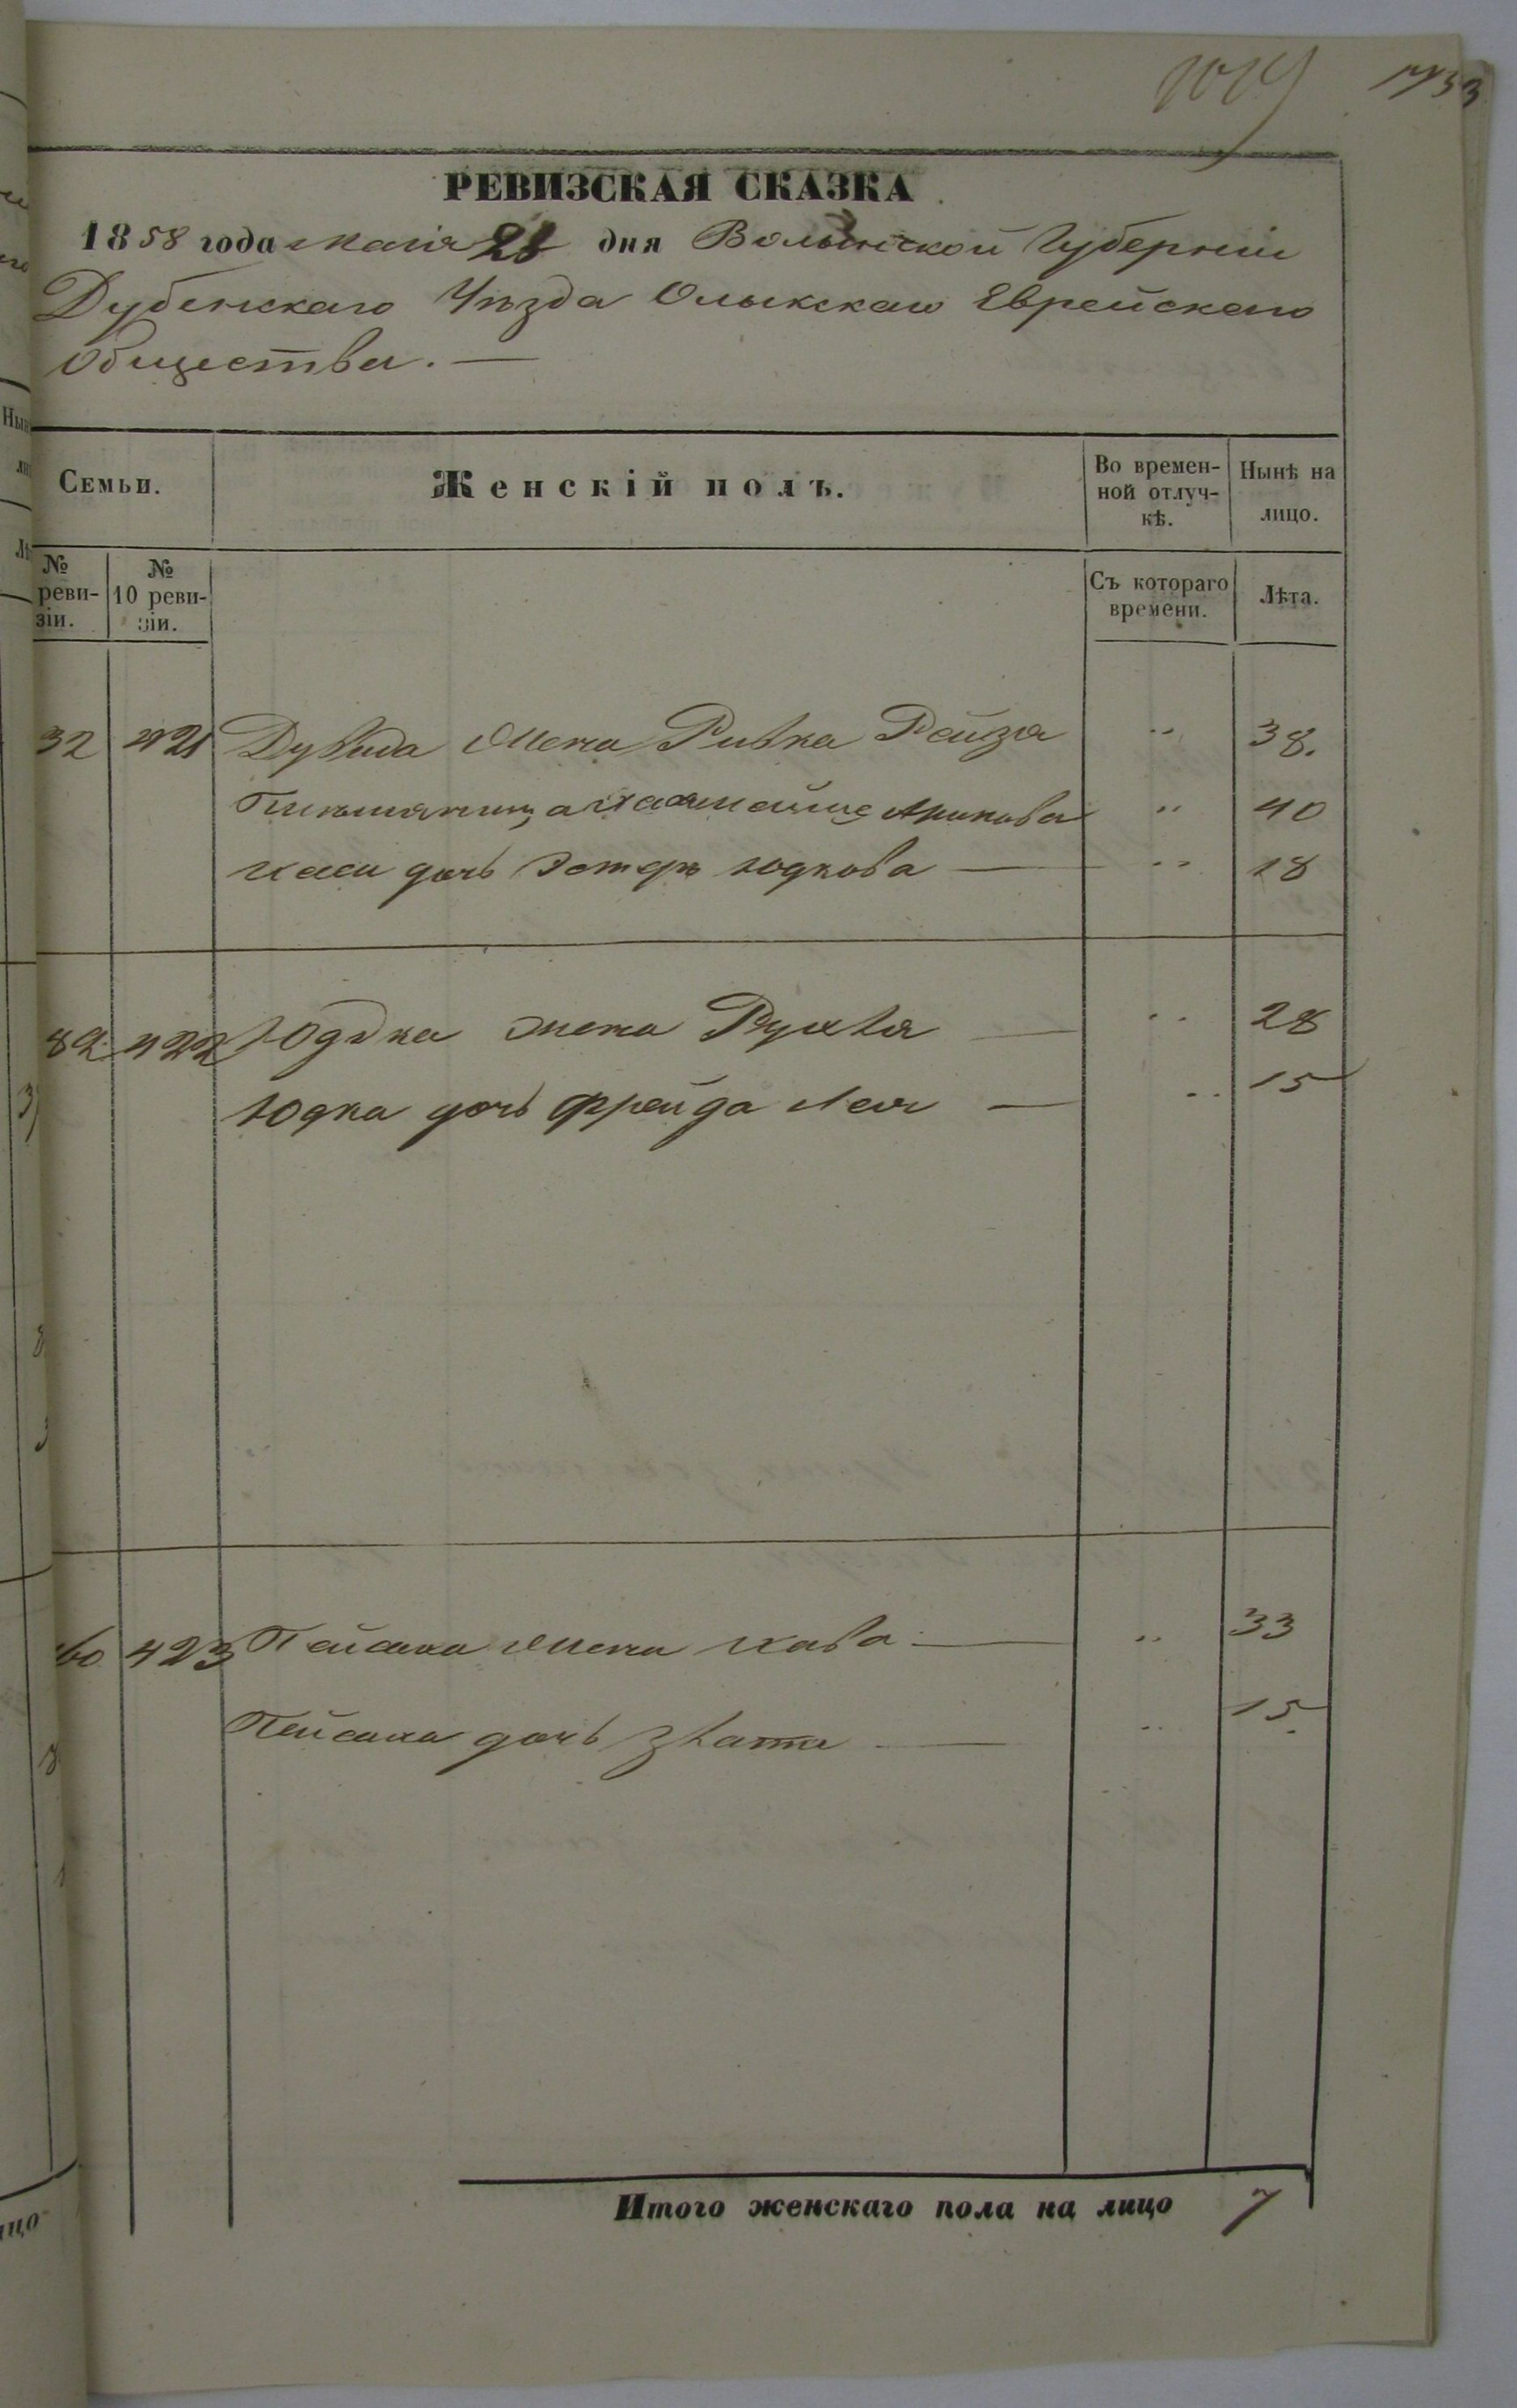 1019 1733
РЕВИЗСКАЯ СКАЗКА
1858 года маія 28 дня Волынской Губерніи
Дубенскаго Уѣзда Олыкскаго Еврейскаго
Общества. —
Семьи.
Женскій полъ.
Во времен-
ной отлуч-
кѣ.
Нынѣ на
лицо.
№
реви-
зіи.
№
10 реви-
зіи.
Съ котораго
времени.
Лѣта.
32 421 Дувида жена Ривка Рейза " 38.
Арикова " 40
Хаси дочь Эстеръ Юдкова — " 18
82 422 Юдка жена Рухля — " 28
Юдка дочь Фрейда Лея — " 15
60 423 Пейсаха жена Хава — " 33
Пейсаха дочь Злата — " 15
Итого женскаго пола на лицо 7